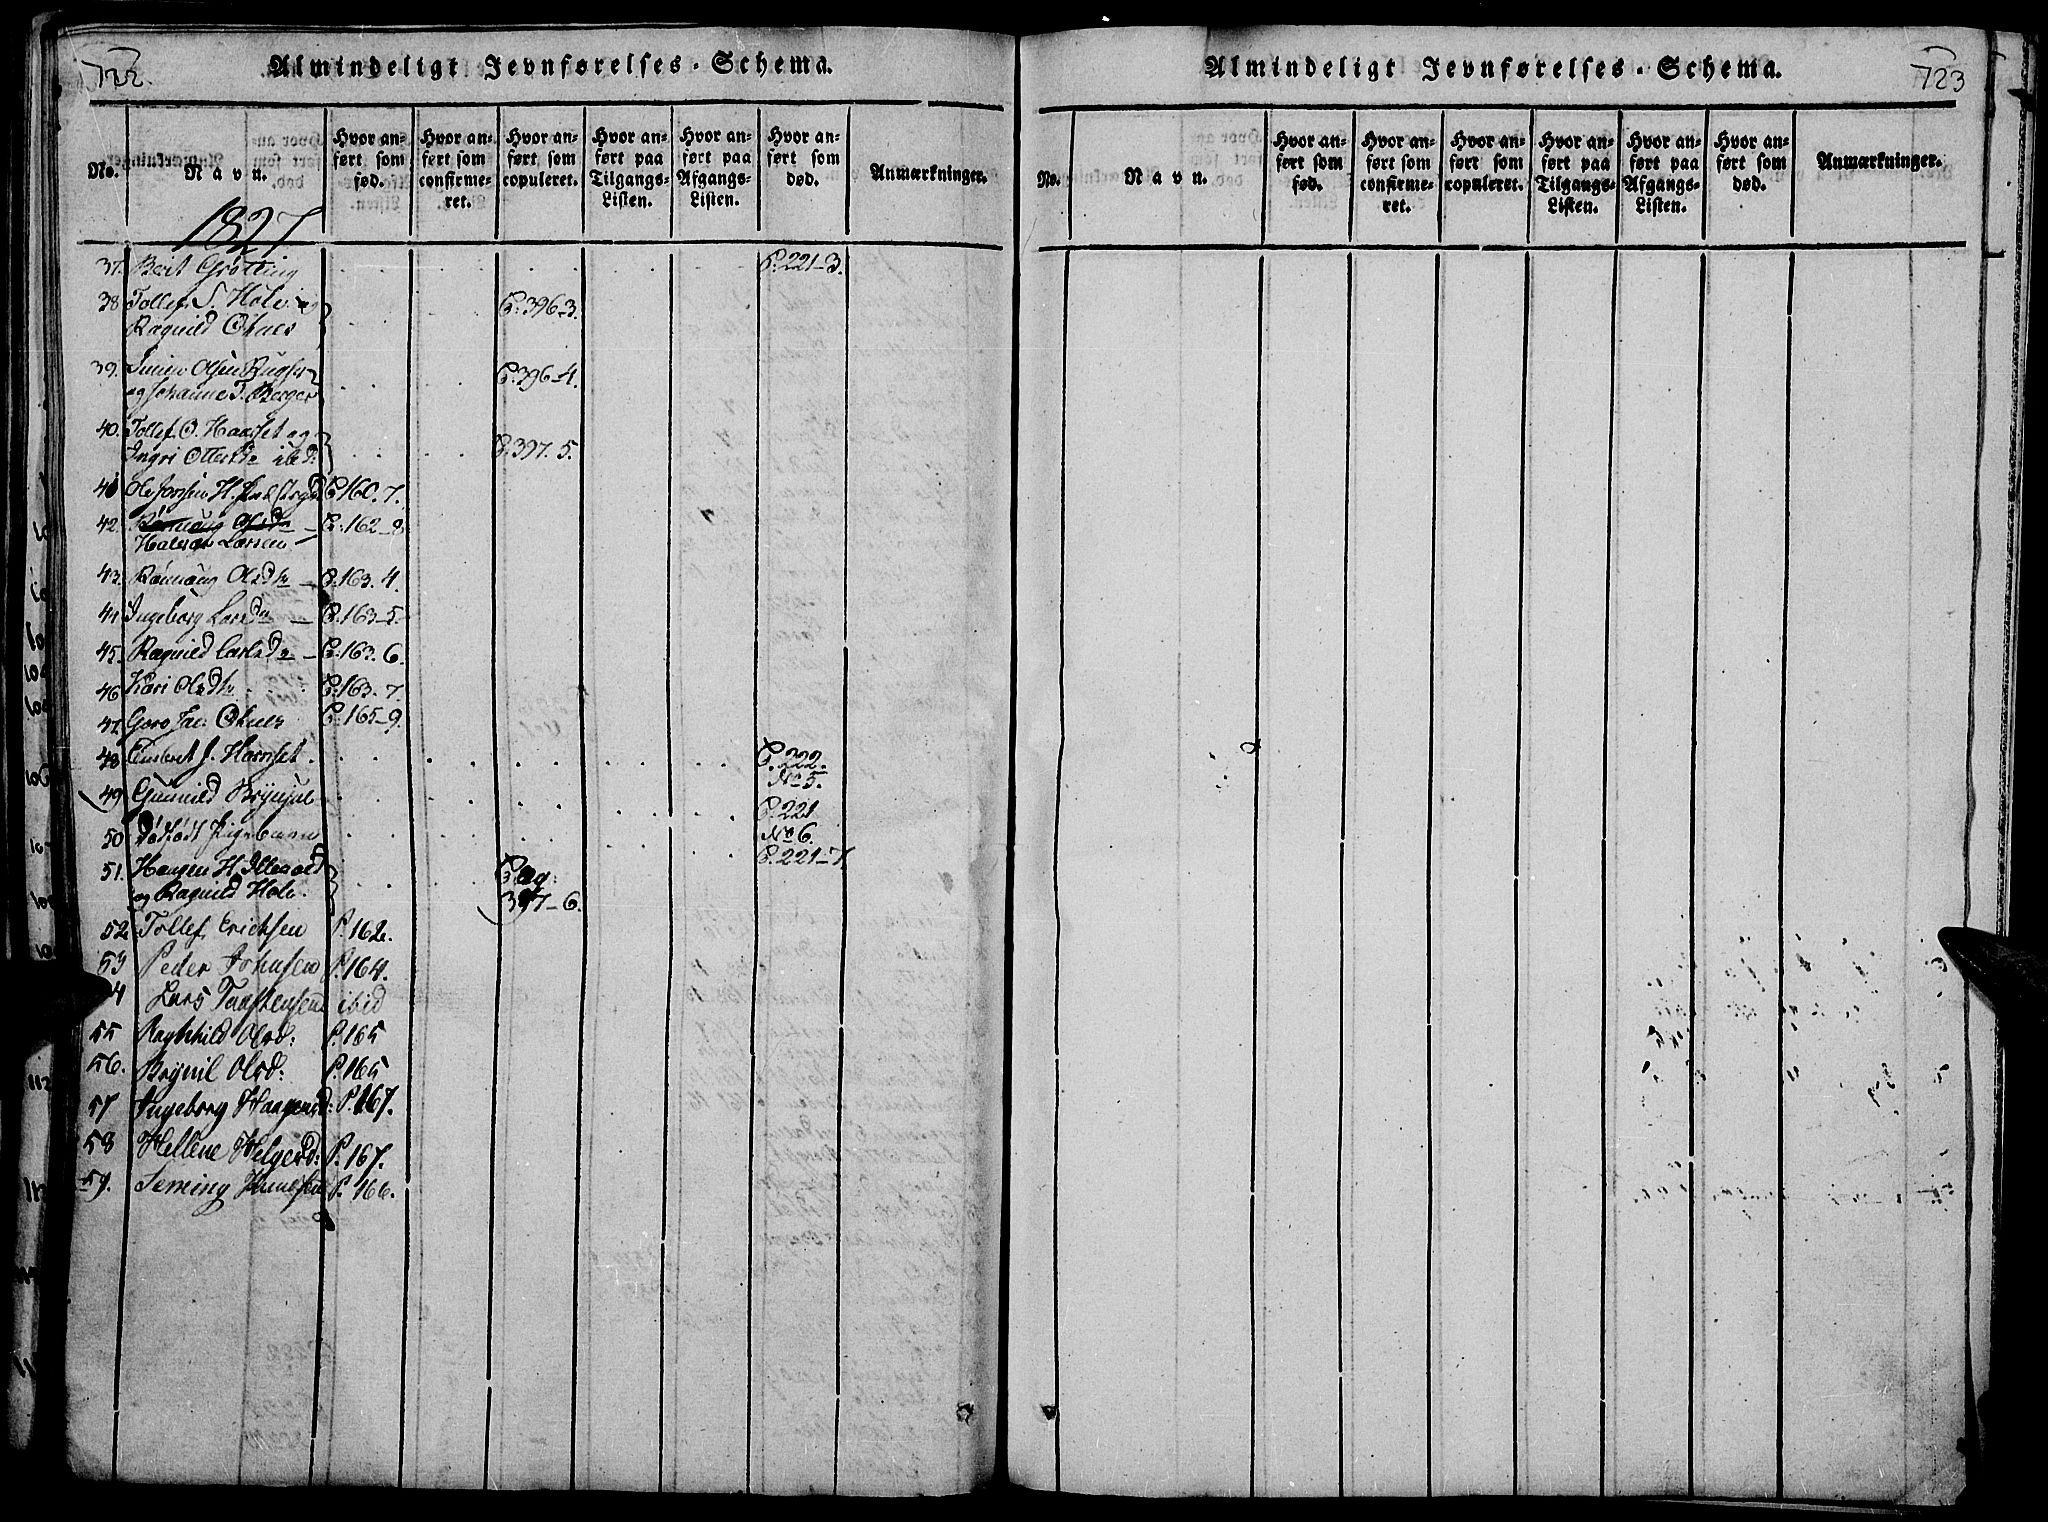 722.
Almindeligt Jevnførelses-Schema.
No.
Navn.
Hvor anført som fød.
Hvor anført som confirmeret.
Hvor anført som copuleret.
Hvor anført paa Tilgangs-Listen.
Hvor anført paa Afgangs-Listen.
Hvor anført som død.
Anmærkninger.
1827
37. Berit Grøtting P. 221-3.
38 Tollef S. Holv og
Ragnild Øhnes P. 396-3.
39. Olsen
og Johanne T. Berger P. 396-4.
40. Tollef O. Haarset og
Ingri Ottersdr ibid. P. 397. 5.
41 Ole P. 160. 7.
42. Rønnaug Olsdr P. 162-8
Halvor Larsen
43. Rønnaug Olsdr P. 163. 4.
44 Ingeborg Larsdr P. 163-5.
45. Ragnild Carlsdr P. 163. 6.
46 Kari Olsdr P. 163. 7.
47. Goro Jac. Øhnes P. 165-9.
48 Embret J. Harrset. P. 222.
No 5.
49 Gunnild Brynjul P. 221
No 6.
50 Dødfødt Pigebarn P. 221-7.
51. Haagen H.
og Ragnild Holv. Pag:
397-6.
52 Tollef Erichsen P. 162.
53 Peder Johnsen P. 164.
54 Lars Taastensen ibid
55 Raghnild Olsd: P. 165
56. Brynil Olsd: P. 165
57 Ingeborg Haagensd: P. 167.
58 Hellene Helgesd: P. 167.
59. Seming Knudsen P. 166.
Almindeligt Jevnførelses-Schema.
723
No.
Navn.
Hvor anført som fød.
Hvor anført som confirmeret.
Hvor anført som copuleret.
Hvor anført paa Tilgangs-Listen.
Hvor anført paa Afgangs-Listen.
Hvor anført som død.
Anmærkninger.